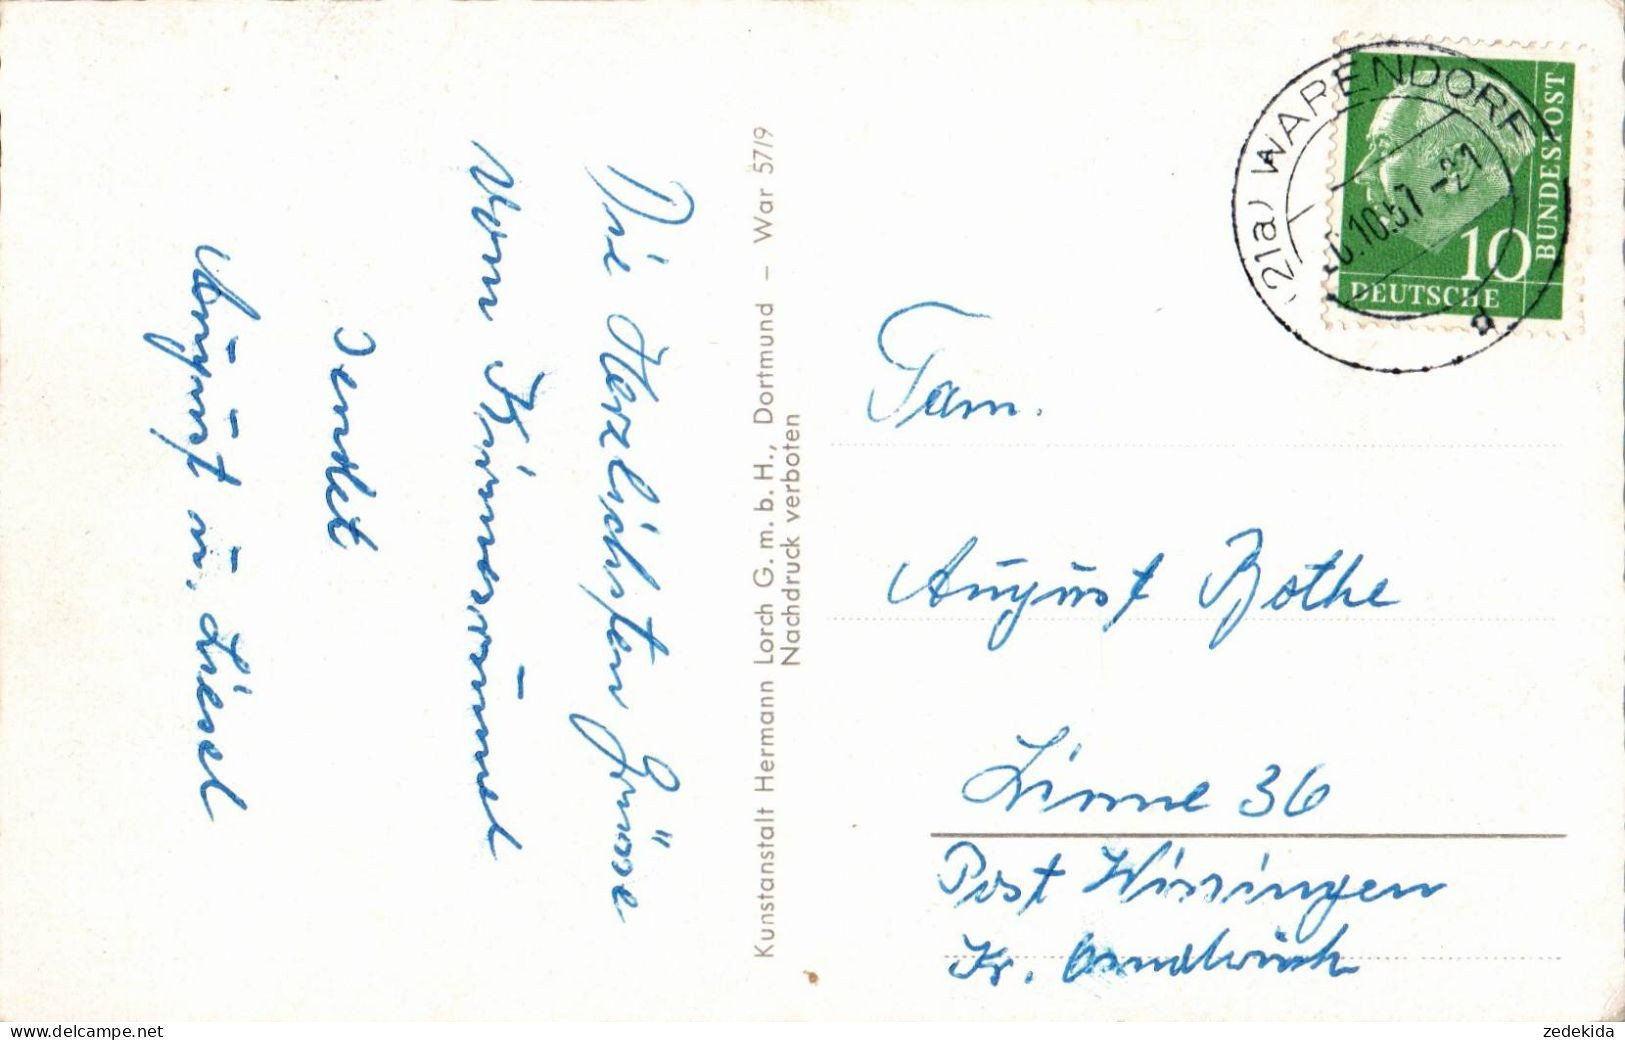 Die Herzlichsten Grüsse
vom
sendet
August u. Liesel
Kunstanstalt Hermann Lorch G. m. b. H., Dortmund – War 57/9
Nachdruck verboten
(21a) WARENDORF
10.57 -21
d
10
DEUTSCHE
BUNDESPOST
Fam.
August Bothe
Linne 36
Post Wissingen
Kr. Osnabrück
www.delcampe.net
zedekida